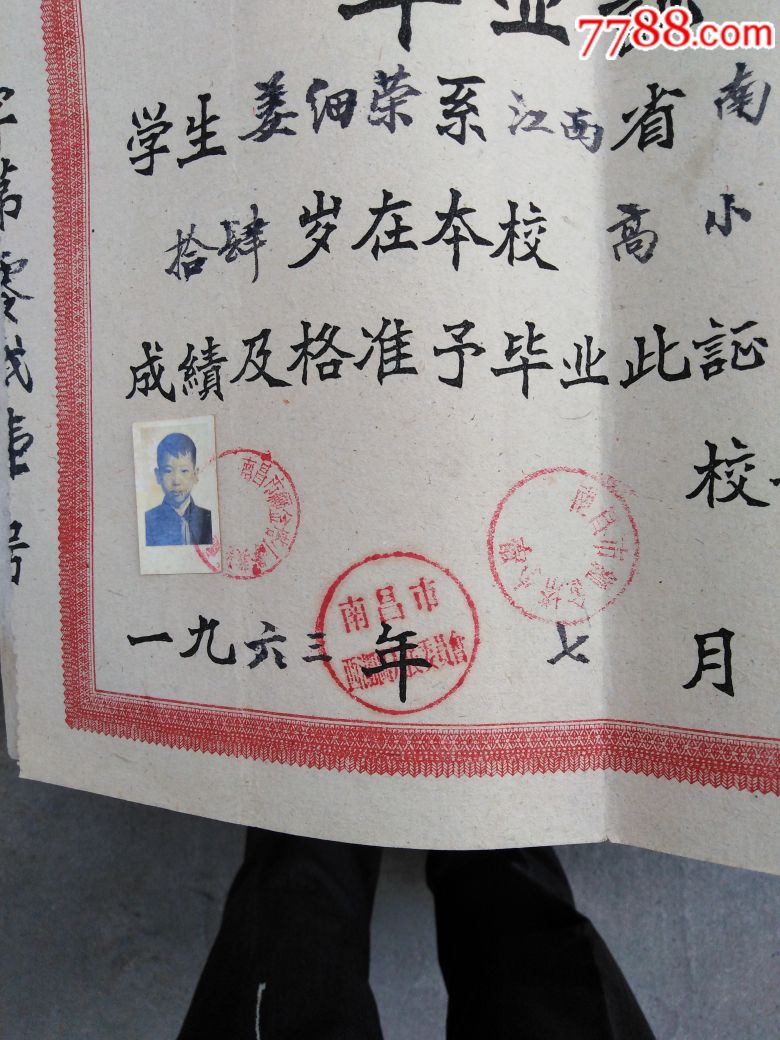 毕业證
7788.com
学生姜细荣系江西省南
拾肆岁在本校高小
成績及格准予毕业此証
校
一九六三年七月
南昌市
第零
号